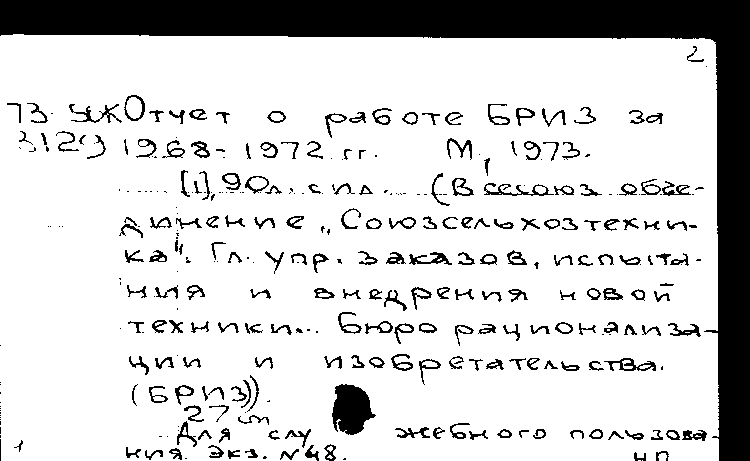 2
73 Отчет о работе БРИЗ за
3129 1968-1972 гг. М, 1973.
[1], 90л. с ил. (Всесоюз. объе-
динение „Союзсельхозтехни-
ка". Гл. упр. заказов, испыта-
ния и внедрения новой
техники... Бюро рационализа-
ции и изобретательства.
(БРИЗ)).
27 cm
Для служебного пользова-
ния. Экз. №48.